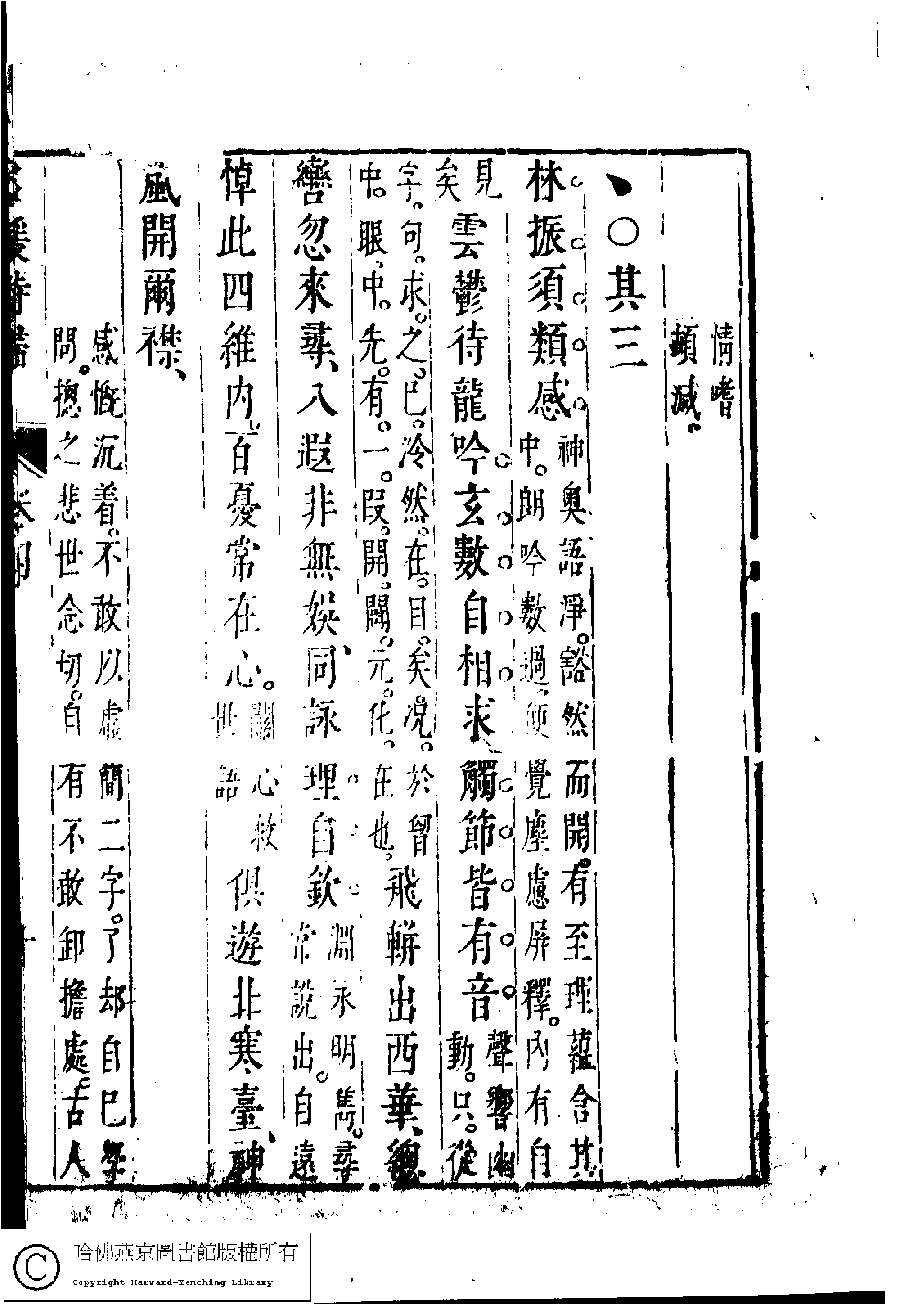 情嗜
頓減。
、○其三
林振須類感
神奧語淨。豁然而開。有至理蘊含其
中。朗吟數過。便覺塵慮屏釋。內有自
見
矣
雲鬱待龍吟玄數自相求觸節皆有音
聲響幽
動。只。從
字。句。求。之。已。冷然。在。目。矣。況。於曾
中。眼。中。先。有。一。段。開。闢。元。化。在也。
飛輧出西華、總
轡忽來尋、八遐非無娛、同詠理自欽
淵永明雋。尋
常說出。自遠
悼此四維內百憂常在心。
關心救
世語
俱遊北寒臺、神
風開爾襟、
感慨沉着。不敢以虛簡二字。了却自己學
問。摠之悲世念切。自有不敢卸擔處。古人
哈佛燕京圖書館版權所有
Copyright Harvard-Yenching Library